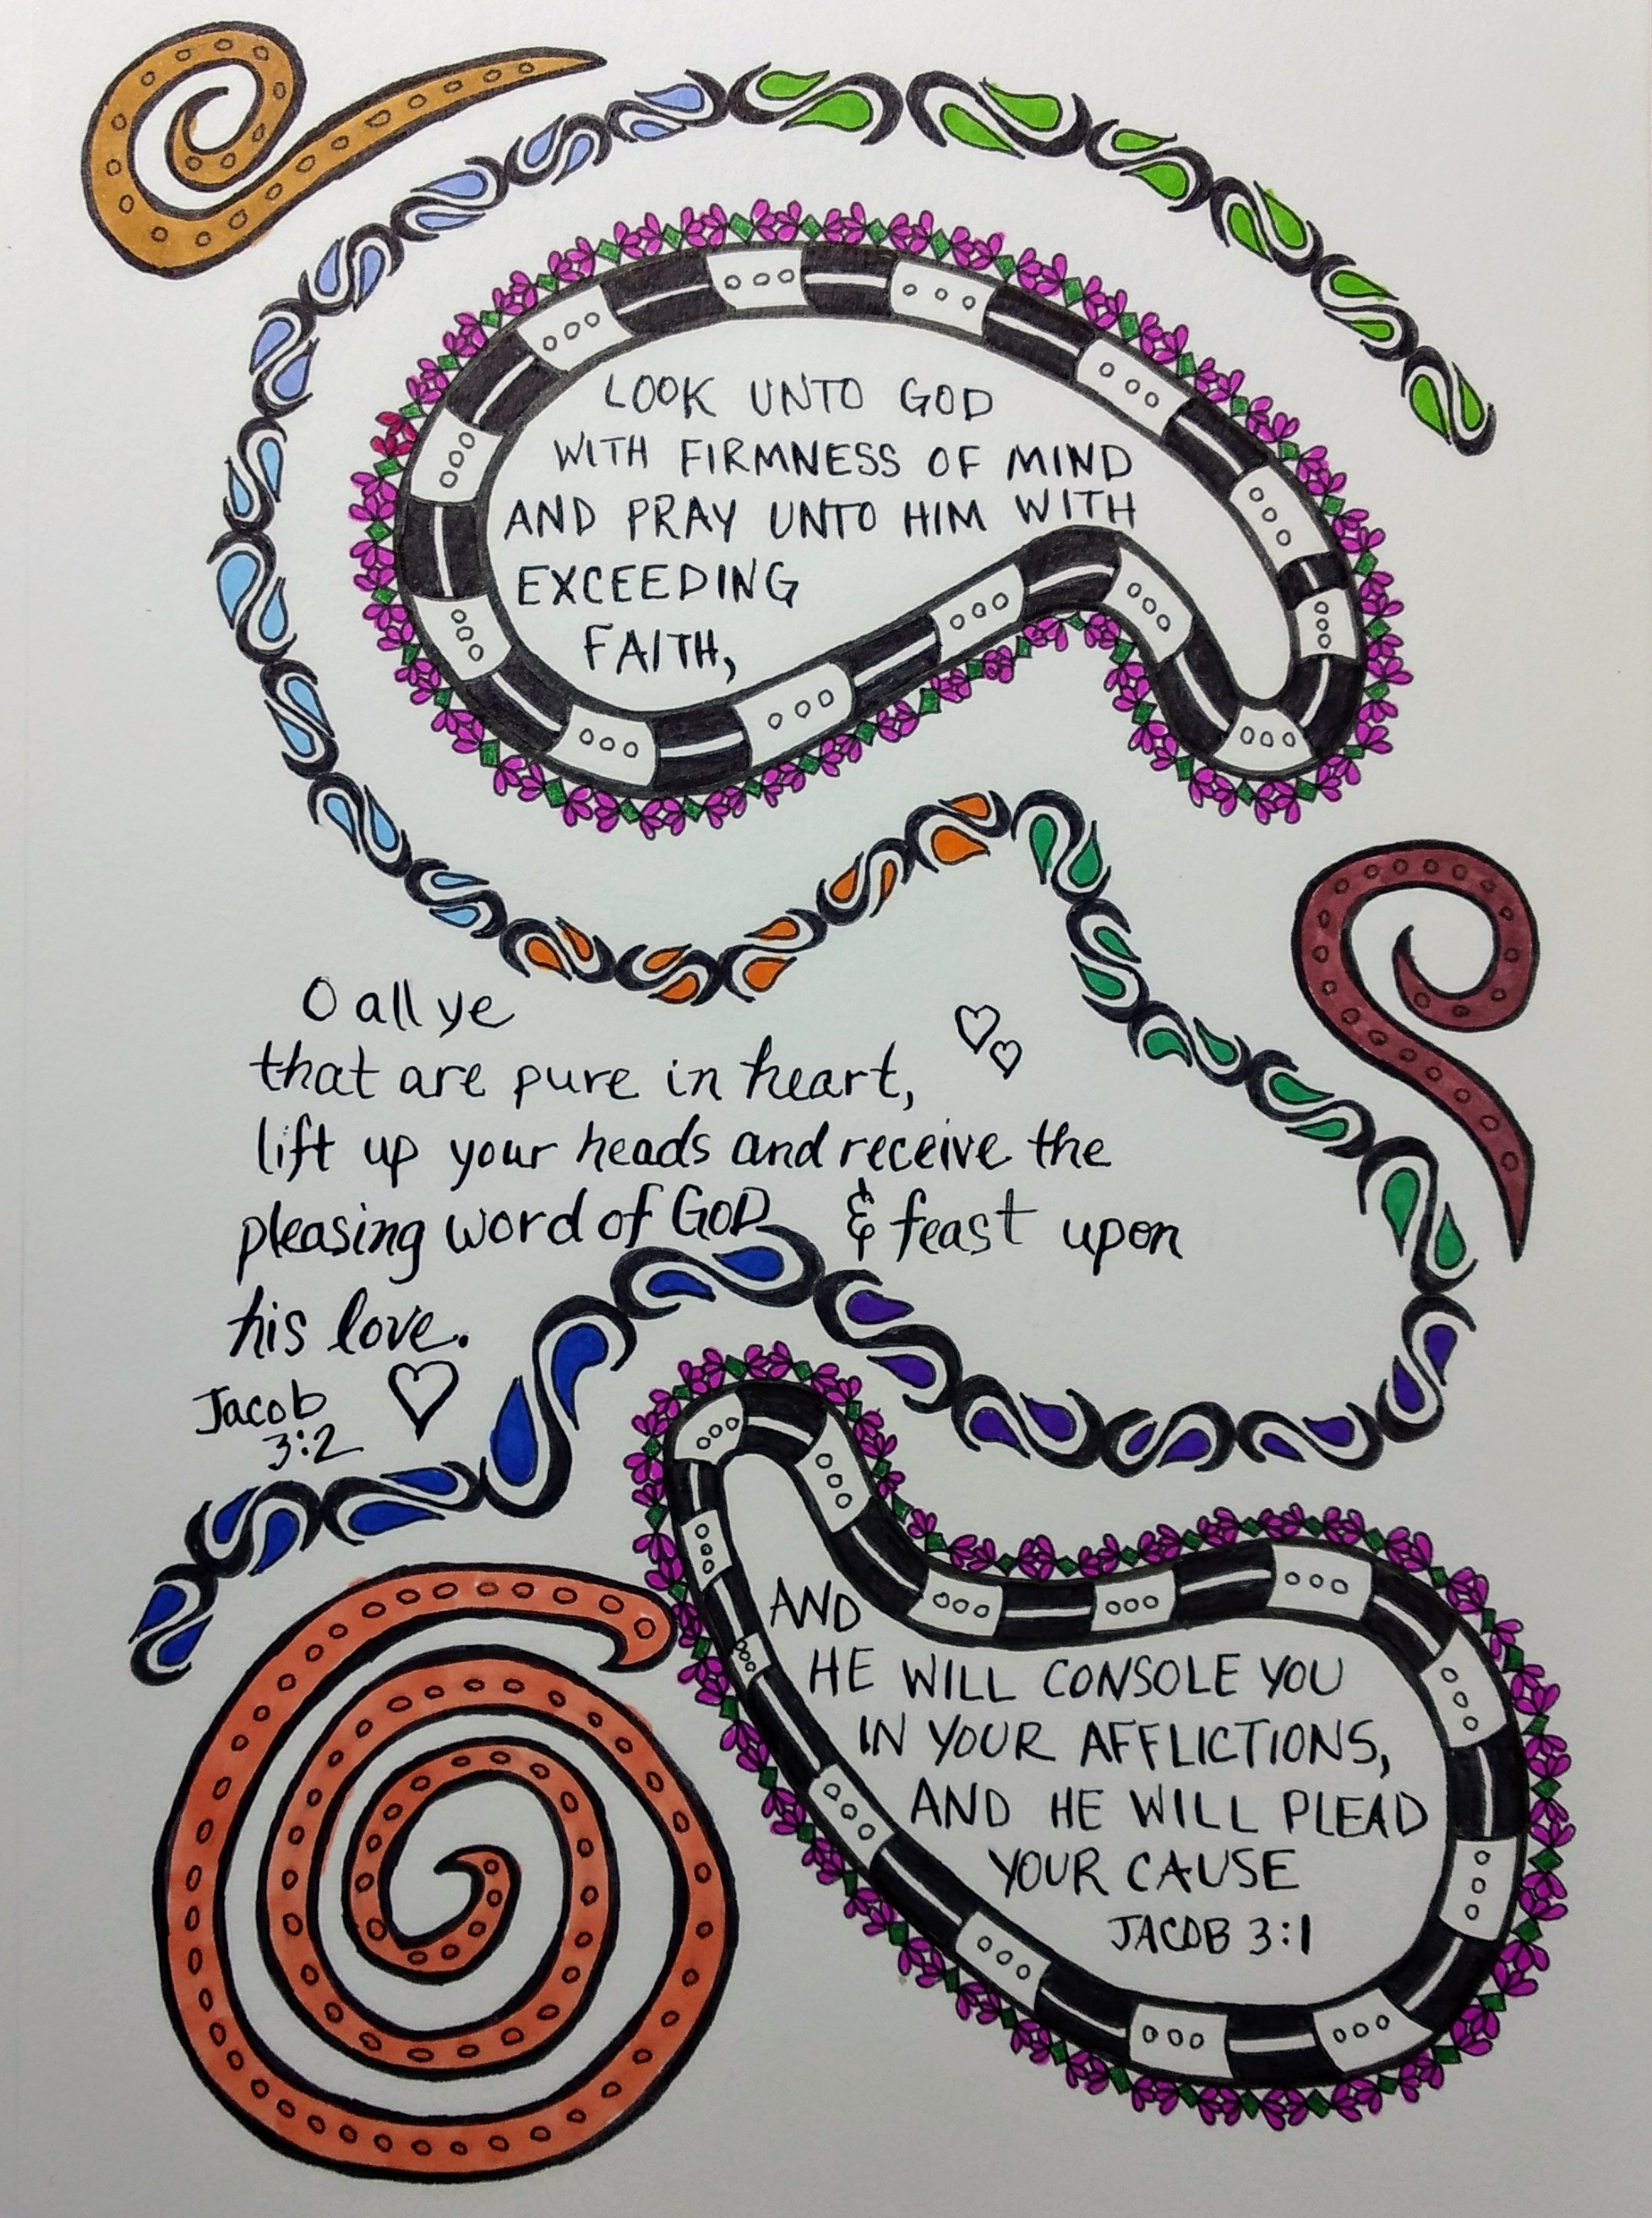 LOOK UNTO GOD
WITH FIRMNESS OF MIND
AND PRAY UNTO HIM WITH
EXCEEDING
FAITH,
O all ye
that are pure in heart,
lift up your heads and receive the
pleasing word of GOD & feast upon
his love.
Jacob
3:2
AND
HE WILL CONSOLE YOU
IN YOUR AFFLICTIONS,
AND HE WILL PLEAD
YOUR CAUSE
JACOB 3:1